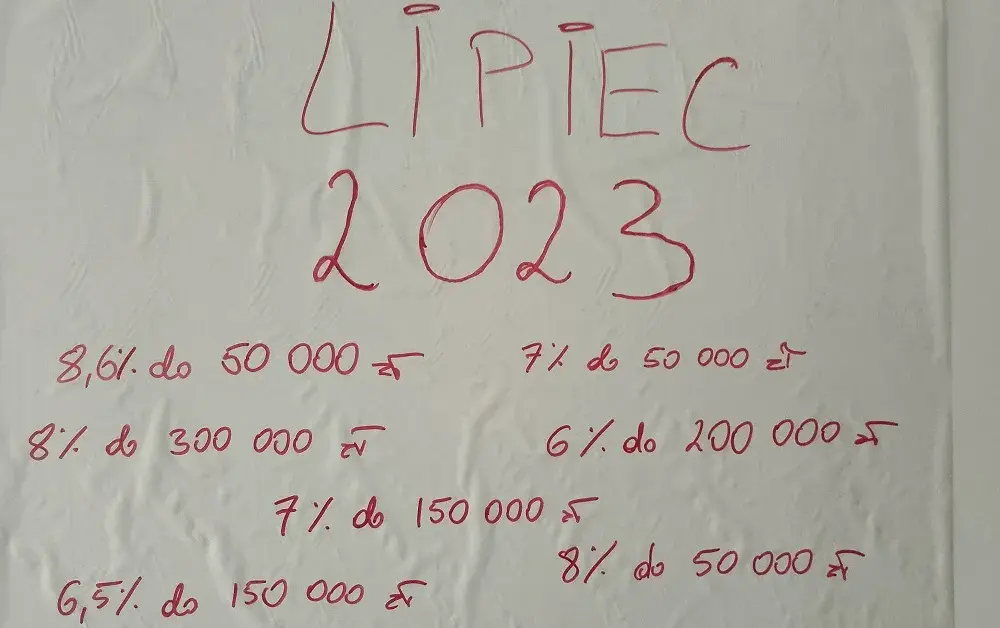 LIPIEC
2023
8,6% do 50 000 zł
7% do 50 000 zł
8% do 300 000 zł
6% do 200 000 zł
7% do 150 000 zł
8% do 50 000 zł
6,5% do 150 000 zł